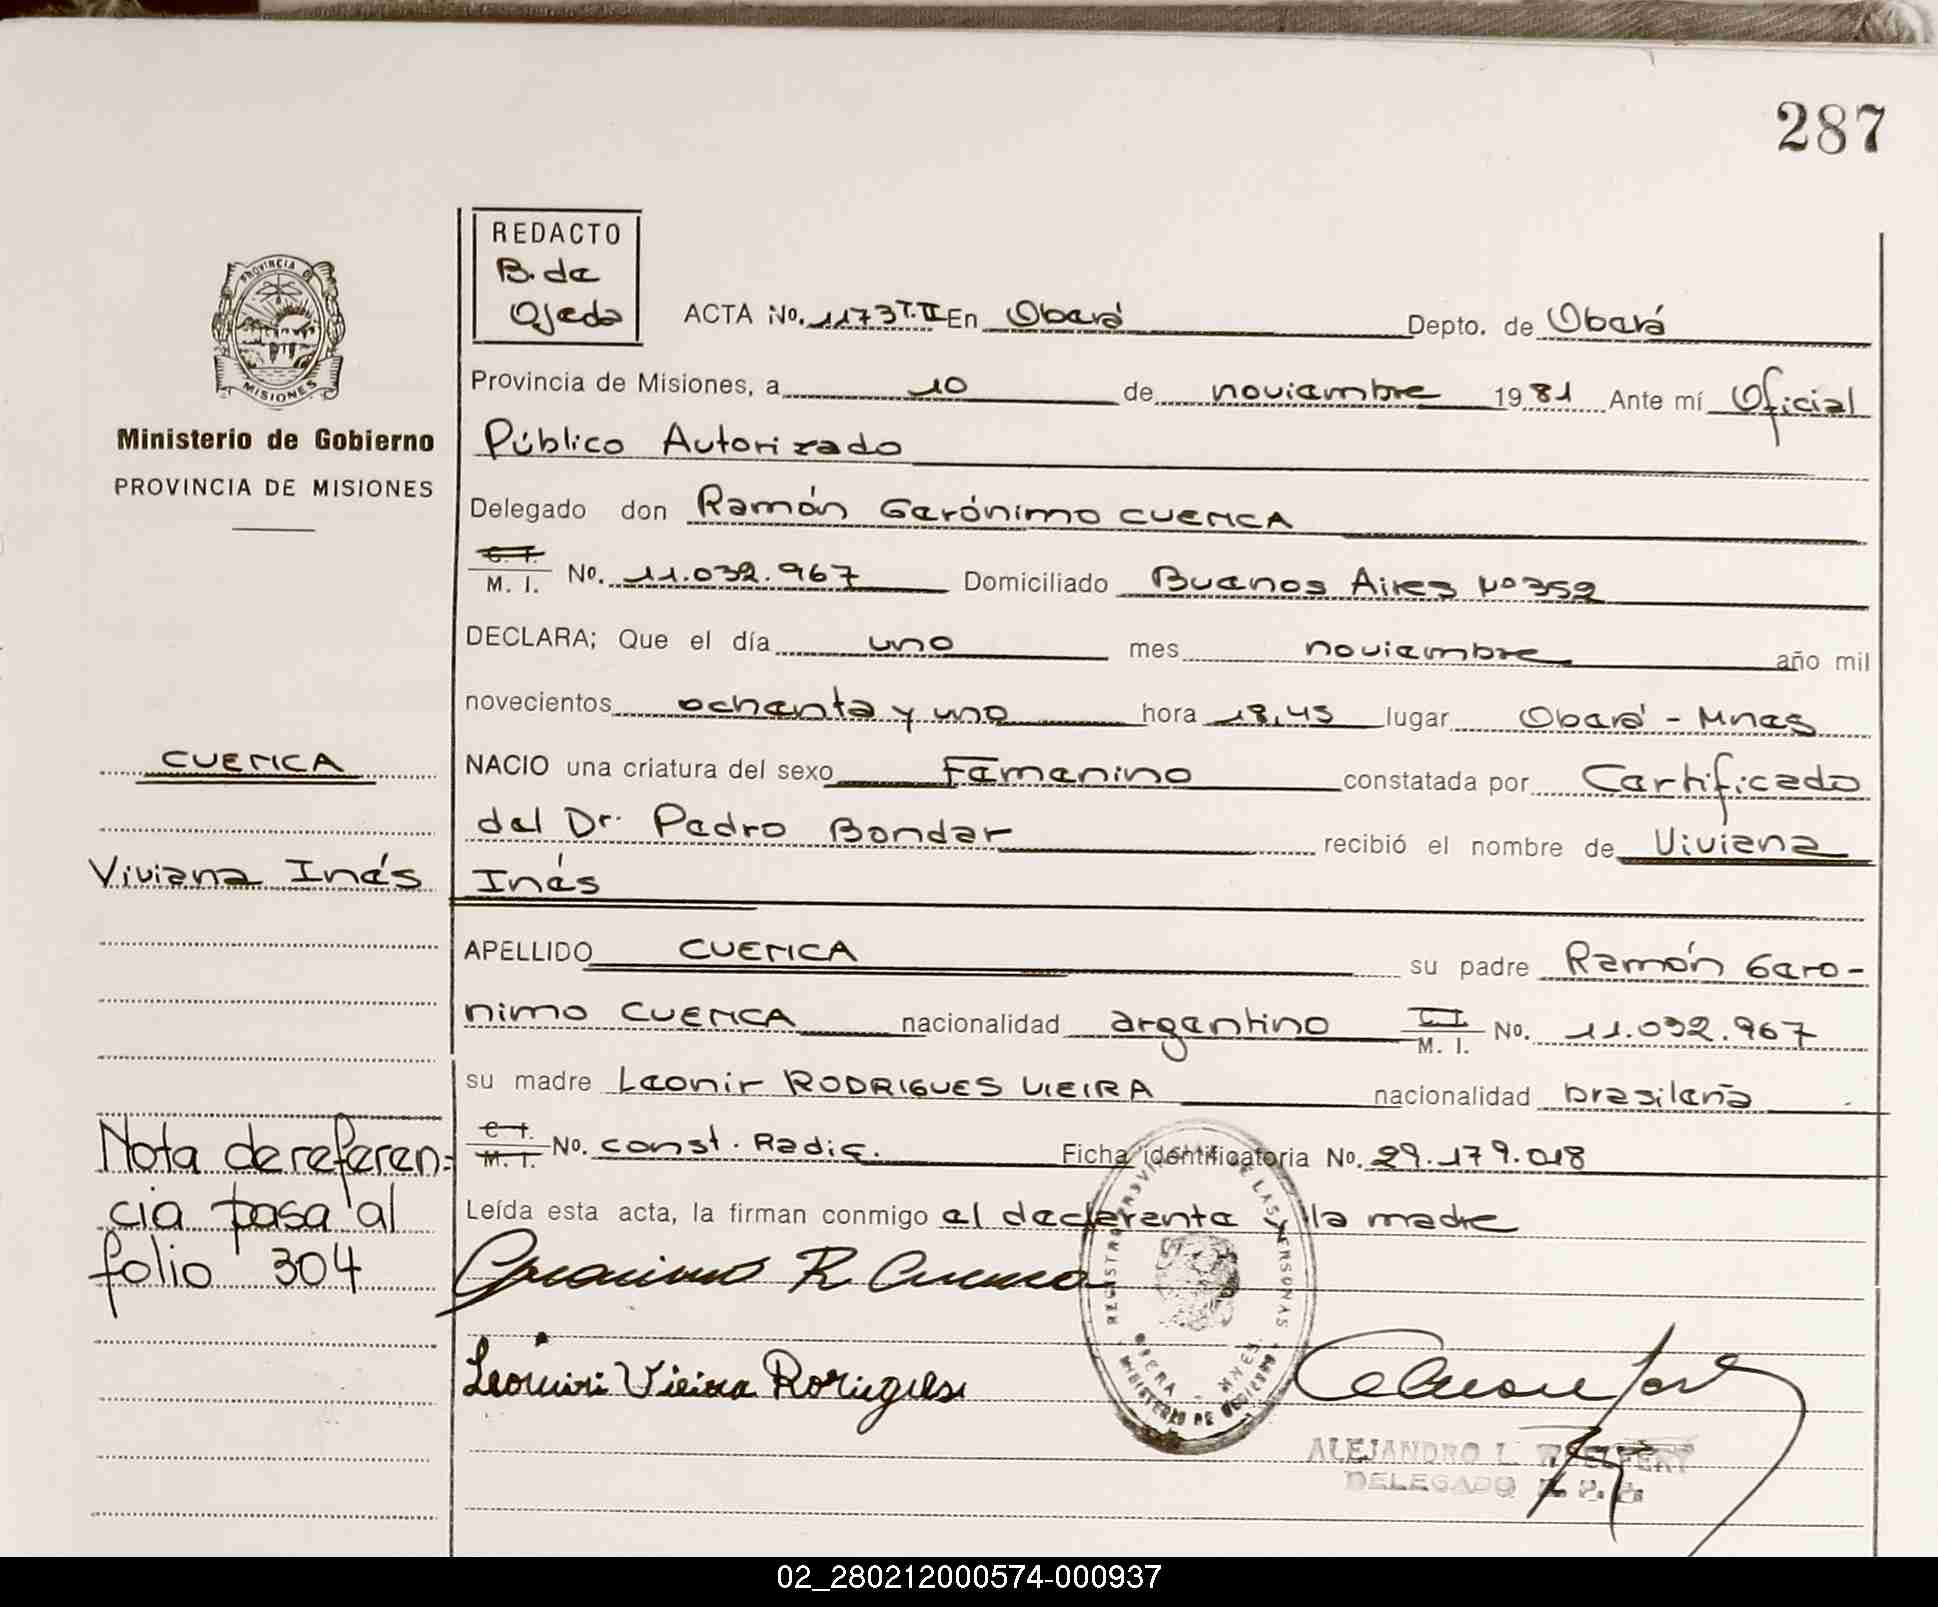 287
REDACTO
B. de
Ojeda
ACTA No. 1173 T.II En Oberá Depto. de Oberá
PROVINCIA DE
MISIONES
Provincia de Misiones, a 10 de noviembre 1981 Ante mí Oficial
Ministerio de Gobierno
Público Autorizado
PROVINCIA DE MISIONES
Delegado don Ramón Gerónimo CUENCA
C. I.
M. I. No. 11.032.967 Domiciliado Buenos Aires Nº 352
DECLARA; Que el día uno mes noviembre año mil
novecientos ochenta y uno hora 18,45 lugar Oberá - Mnes
CUENCA
NACIO una criatura del sexo Femenino constatada por Certificado
del Dr. Pedro Bondar recibió el nombre de Viviana
Viviana Inés
Inés
APELLIDO CUENCA su padre Ramón Gero-
nimo CUENCA nacionalidad argentino M. I. No. 11.032.967
su madre Leonir RODRIGUES VIEIRA nacionalidad brasileña
Nota de referen-
cia pasa al
folio 304
C. I.
M. I. No. const. Radic. Ficha identificatoria No. 29.179.018
Leída esta acta, la firman conmigo el declarante y la madre
Geronimo R Cuenca
Vieira
REGISTRO PROVINCIAL DE LAS PERSONAS
OBERA - MNES.
MINISTERIO DE GOBIERNO
ALEJANDRO L.
DELEGADO
02_280212000574-000937